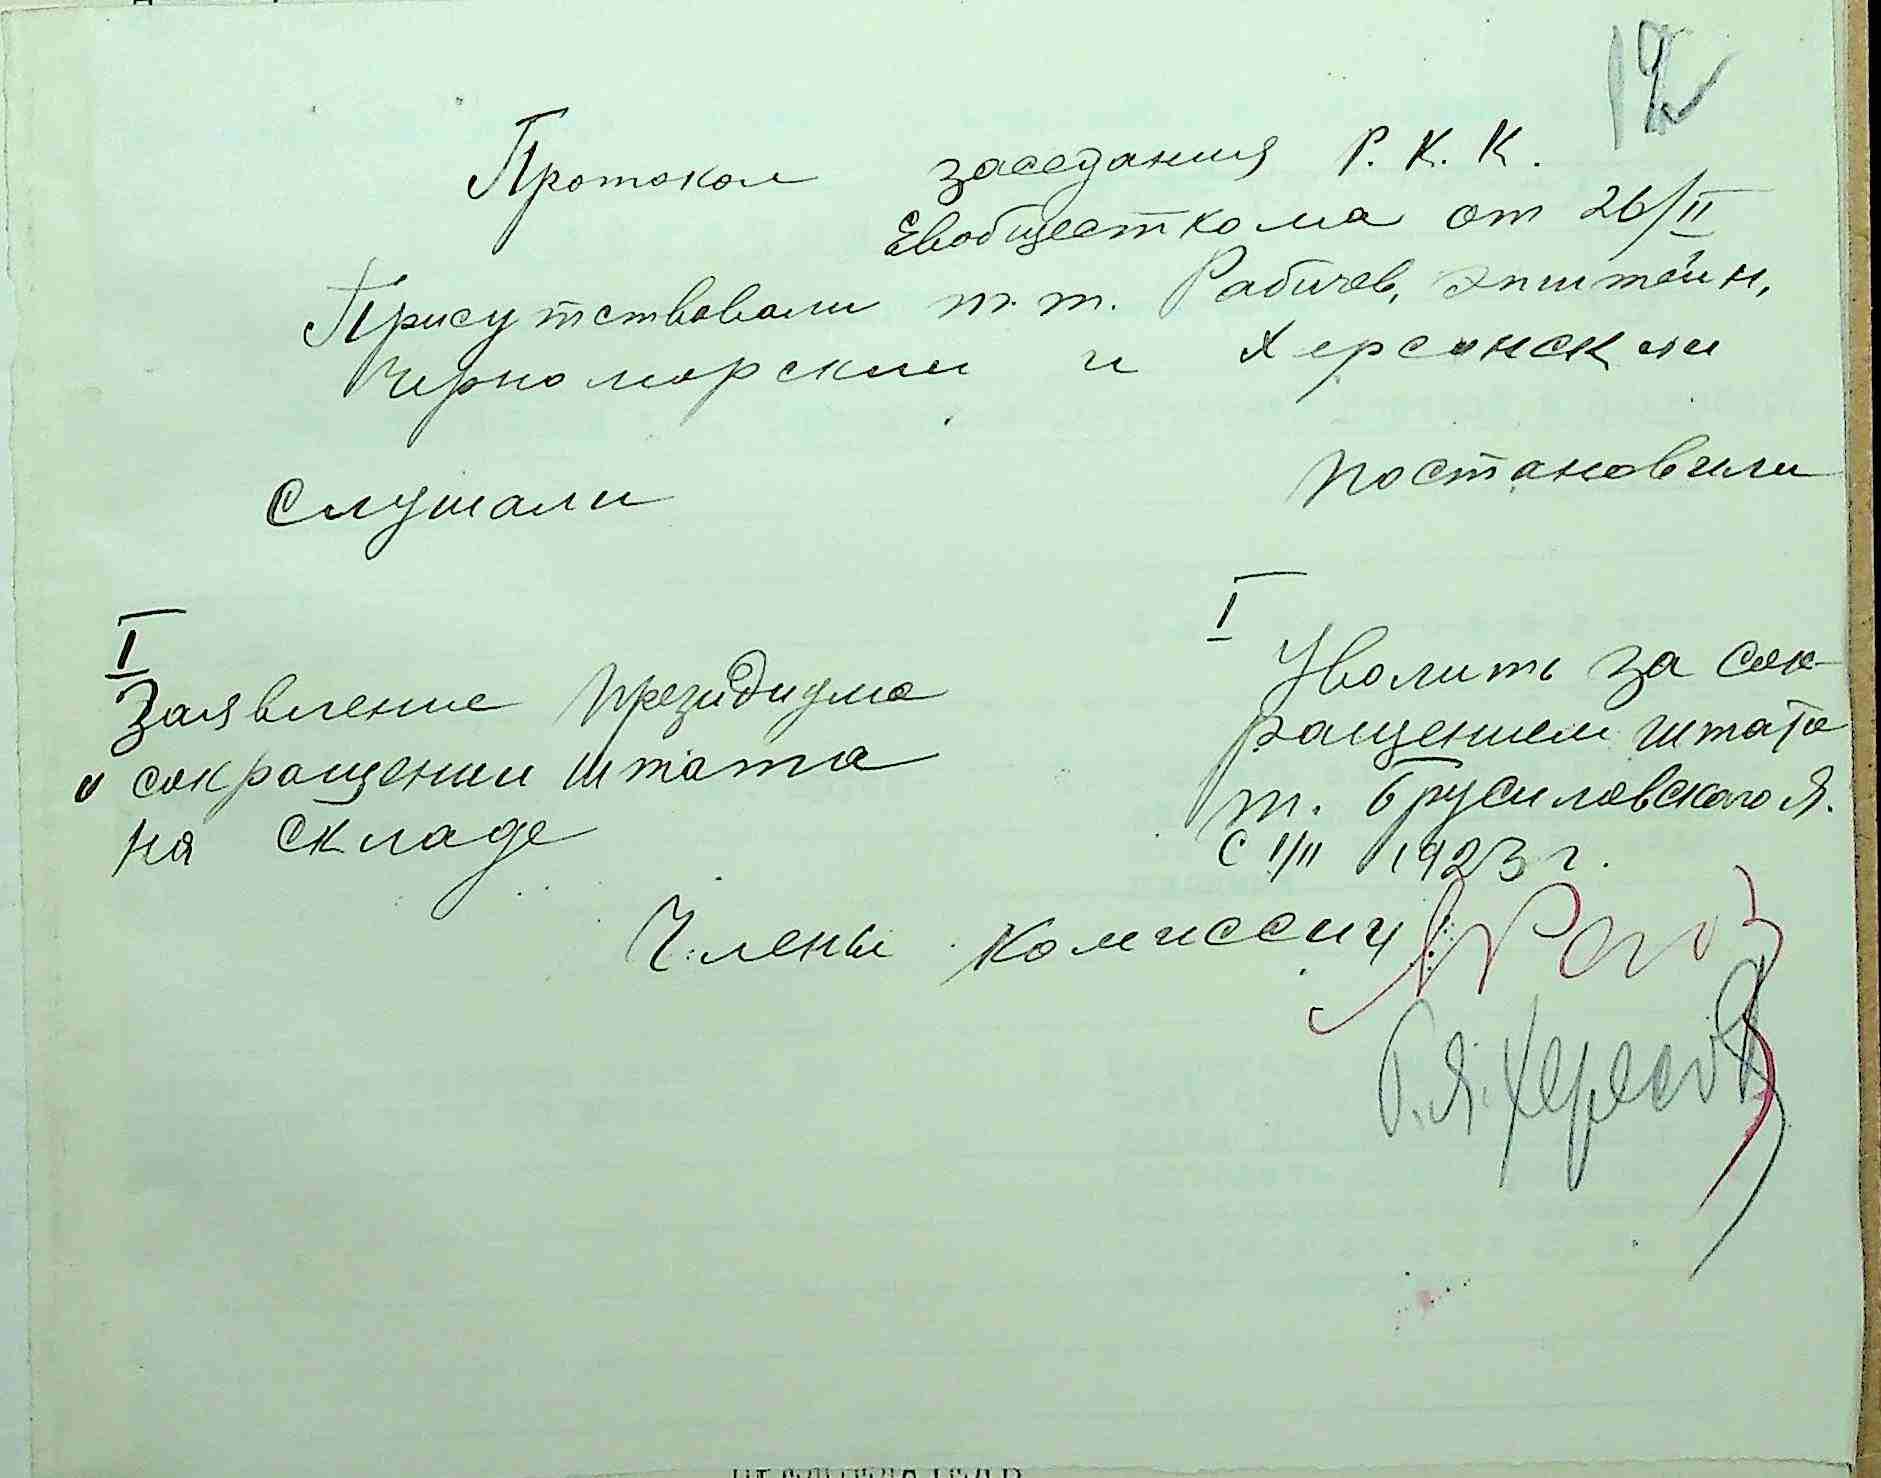 12
Протокол заседания Р.К.К.
Евобщесткома от 26/II
Присутствовали т.т. Рабичев, Эпштейн,
Черноморский и Херсонский
Слушали
Постановили
I
Заявление президиума
о сокращении штата
на складе
I
Уволить за сок-
ращением штата
т. Брусиловского Я.
с 1/II 1923 г.
Члены комиссии: